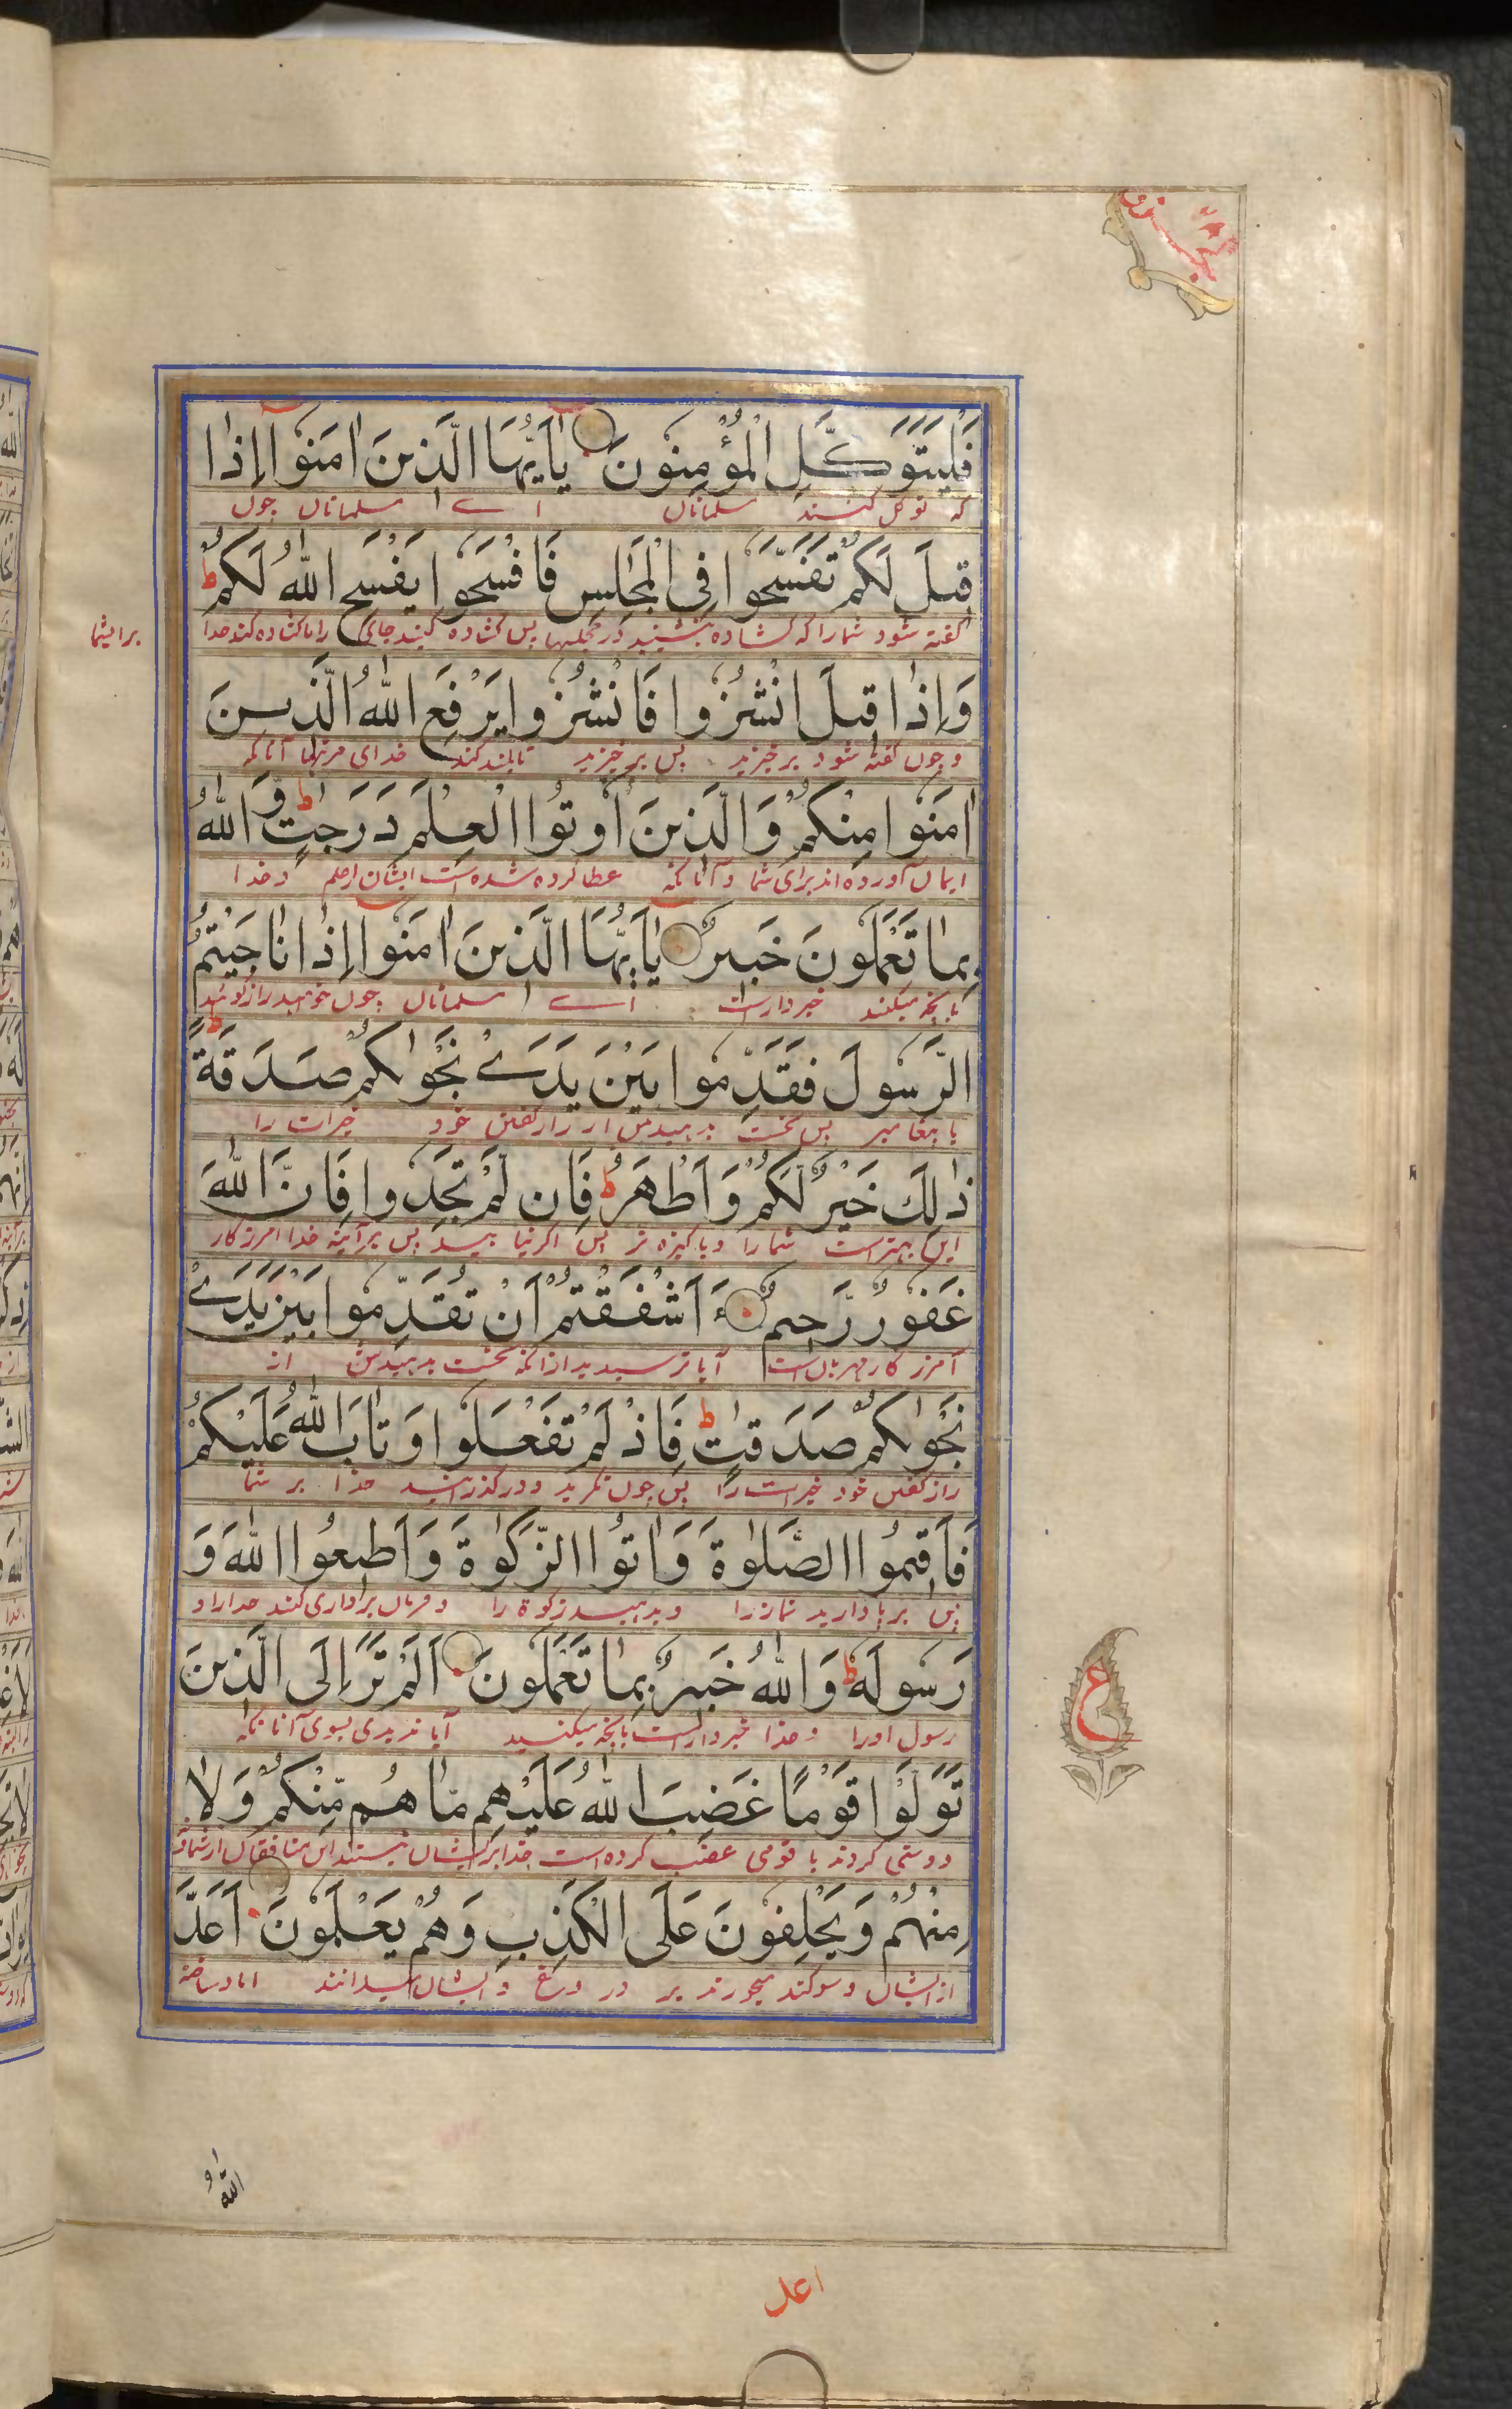 فَلْيَتَوَكَّلِ الْمُؤْمِنُونَ يٰاَيُّهَا الَّذِينَ اٰمَنُوا اِذَا
که توکل کنند مسلمانان اے مسلمانان چون
قِيلَ لَكُمْ تَفَسَّحُوا فِي الْمَجٰلِسِ فَافْسَحُوا يَفْسَحِ اللّٰهُ لَكُمْ ط
گفته شود شما را که کشاده بنشینید در مجلسها پس کشاده کنید جای را تا کشاده کند خدا
برای شما
وَاِذَا قِيلَ انْشُزُوا فَانْشُزُوا يَرْفَعِ اللّٰهُ الَّذِينَ
و چون گفته شود برخیزید پس برخیزید تا بلند کند خدای مرتبها آنانکه
اٰمَنُوا مِنْكُمْ وَالَّذِينَ اُوتُوا الْعِلْمَ دَرَجٰتٍ ط وَاللّٰهُ
ایمان آورده اند برای شما و آنانکه عطا کرده شده است ایشان را علم و خدا
بِمَا تَعْمَلُونَ خَبِيرٌ يٰاَيُّهَا الَّذِينَ اٰمَنُوا اِذَا نَاجَيْتُمُ
بانچه میکنند خبردار است اے مسلمانان چون خواهید راز گوئید
الرَّسُولَ فَقَدِّمُوا بَيْنَ يَدَےْ نَجْوٰىكُمْ صَدَقَةً ط
با پیغامبر پس نخست بدهید پیش از راز گفتن خود خیرات را
ذٰلِكَ خَيْرٌ لَّكُمْ وَاَطْهَرُ ط فَاِنْ لَّمْ تَجِدُوا فَاِنَّ اللّٰهَ
این بهتر است شما را و پاکیزه تر پس اگر نیابید پس هر آئینه خدا آمرزکار
غَفُورٌ رَّحِيمٌ ءَاَشْفَقْتُمْ اَنْ تُقَدِّمُوا بَيْنَ يَدَےْ
آمرزکار مهربان است آیا ترسیدید از انکه نخست بدهید پیش از
نَجْوٰىكُمْ صَدَقٰتٍ ط فَاِذْ لَمْ تَفْعَلُوا وَتَابَ اللّٰهُ عَلَيْكُمْ
راز گفتن خود خیرات را پس چون نکردید و درگذرانید خدا بر شما
فَاَقِيمُوا الصَّلٰوةَ وَاٰتُوا الزَّكٰوةَ وَاَطِيعُوا اللّٰهَ وَ
پس برپا دارید نماز را و بدهید زکوة را و فرمان برداری کنند خدا را و
رَسُولَهٗ ط وَاللّٰهُ خَبِيرٌ بِمَا تَعْمَلُونَ اَلَمْ تَرَ اِلَى الَّذِينَ
رسول او را و خدا خبردار است بانچه میکنید آیا ندیدی بسوی آنانکه
ع
تَوَلَّوْا قَوْمًا غَضِبَ اللّٰهُ عَلَيْهِمْ مَّا هُمْ مِّنْكُمْ وَلَا
دوستی کردند با قومی غضب کرده است خدا بر ایشان نیستند این منافقان از شما و
مِنْهُمْ وَيَحْلِفُونَ عَلَى الْكَذِبِ وَهُمْ يَعْلَمُونَ اَعَدَّ
از ایشان و سوکند میخورند بر دروغ و ایشان میدانند اماده ساخته
اللّٰهُ